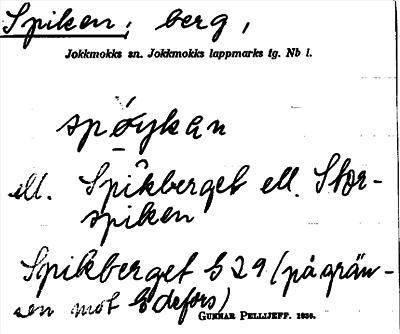 Spiken; berg,
Jokkmokks sn. Jokkmokks lappmarks tg. Nb l.
spøykan
ell. Spikberget ell. Stor-
spiken
Spikberget b 29 (på grän-
sen mot Edefors)
GUNNAR PELLIJEFF. 1936.